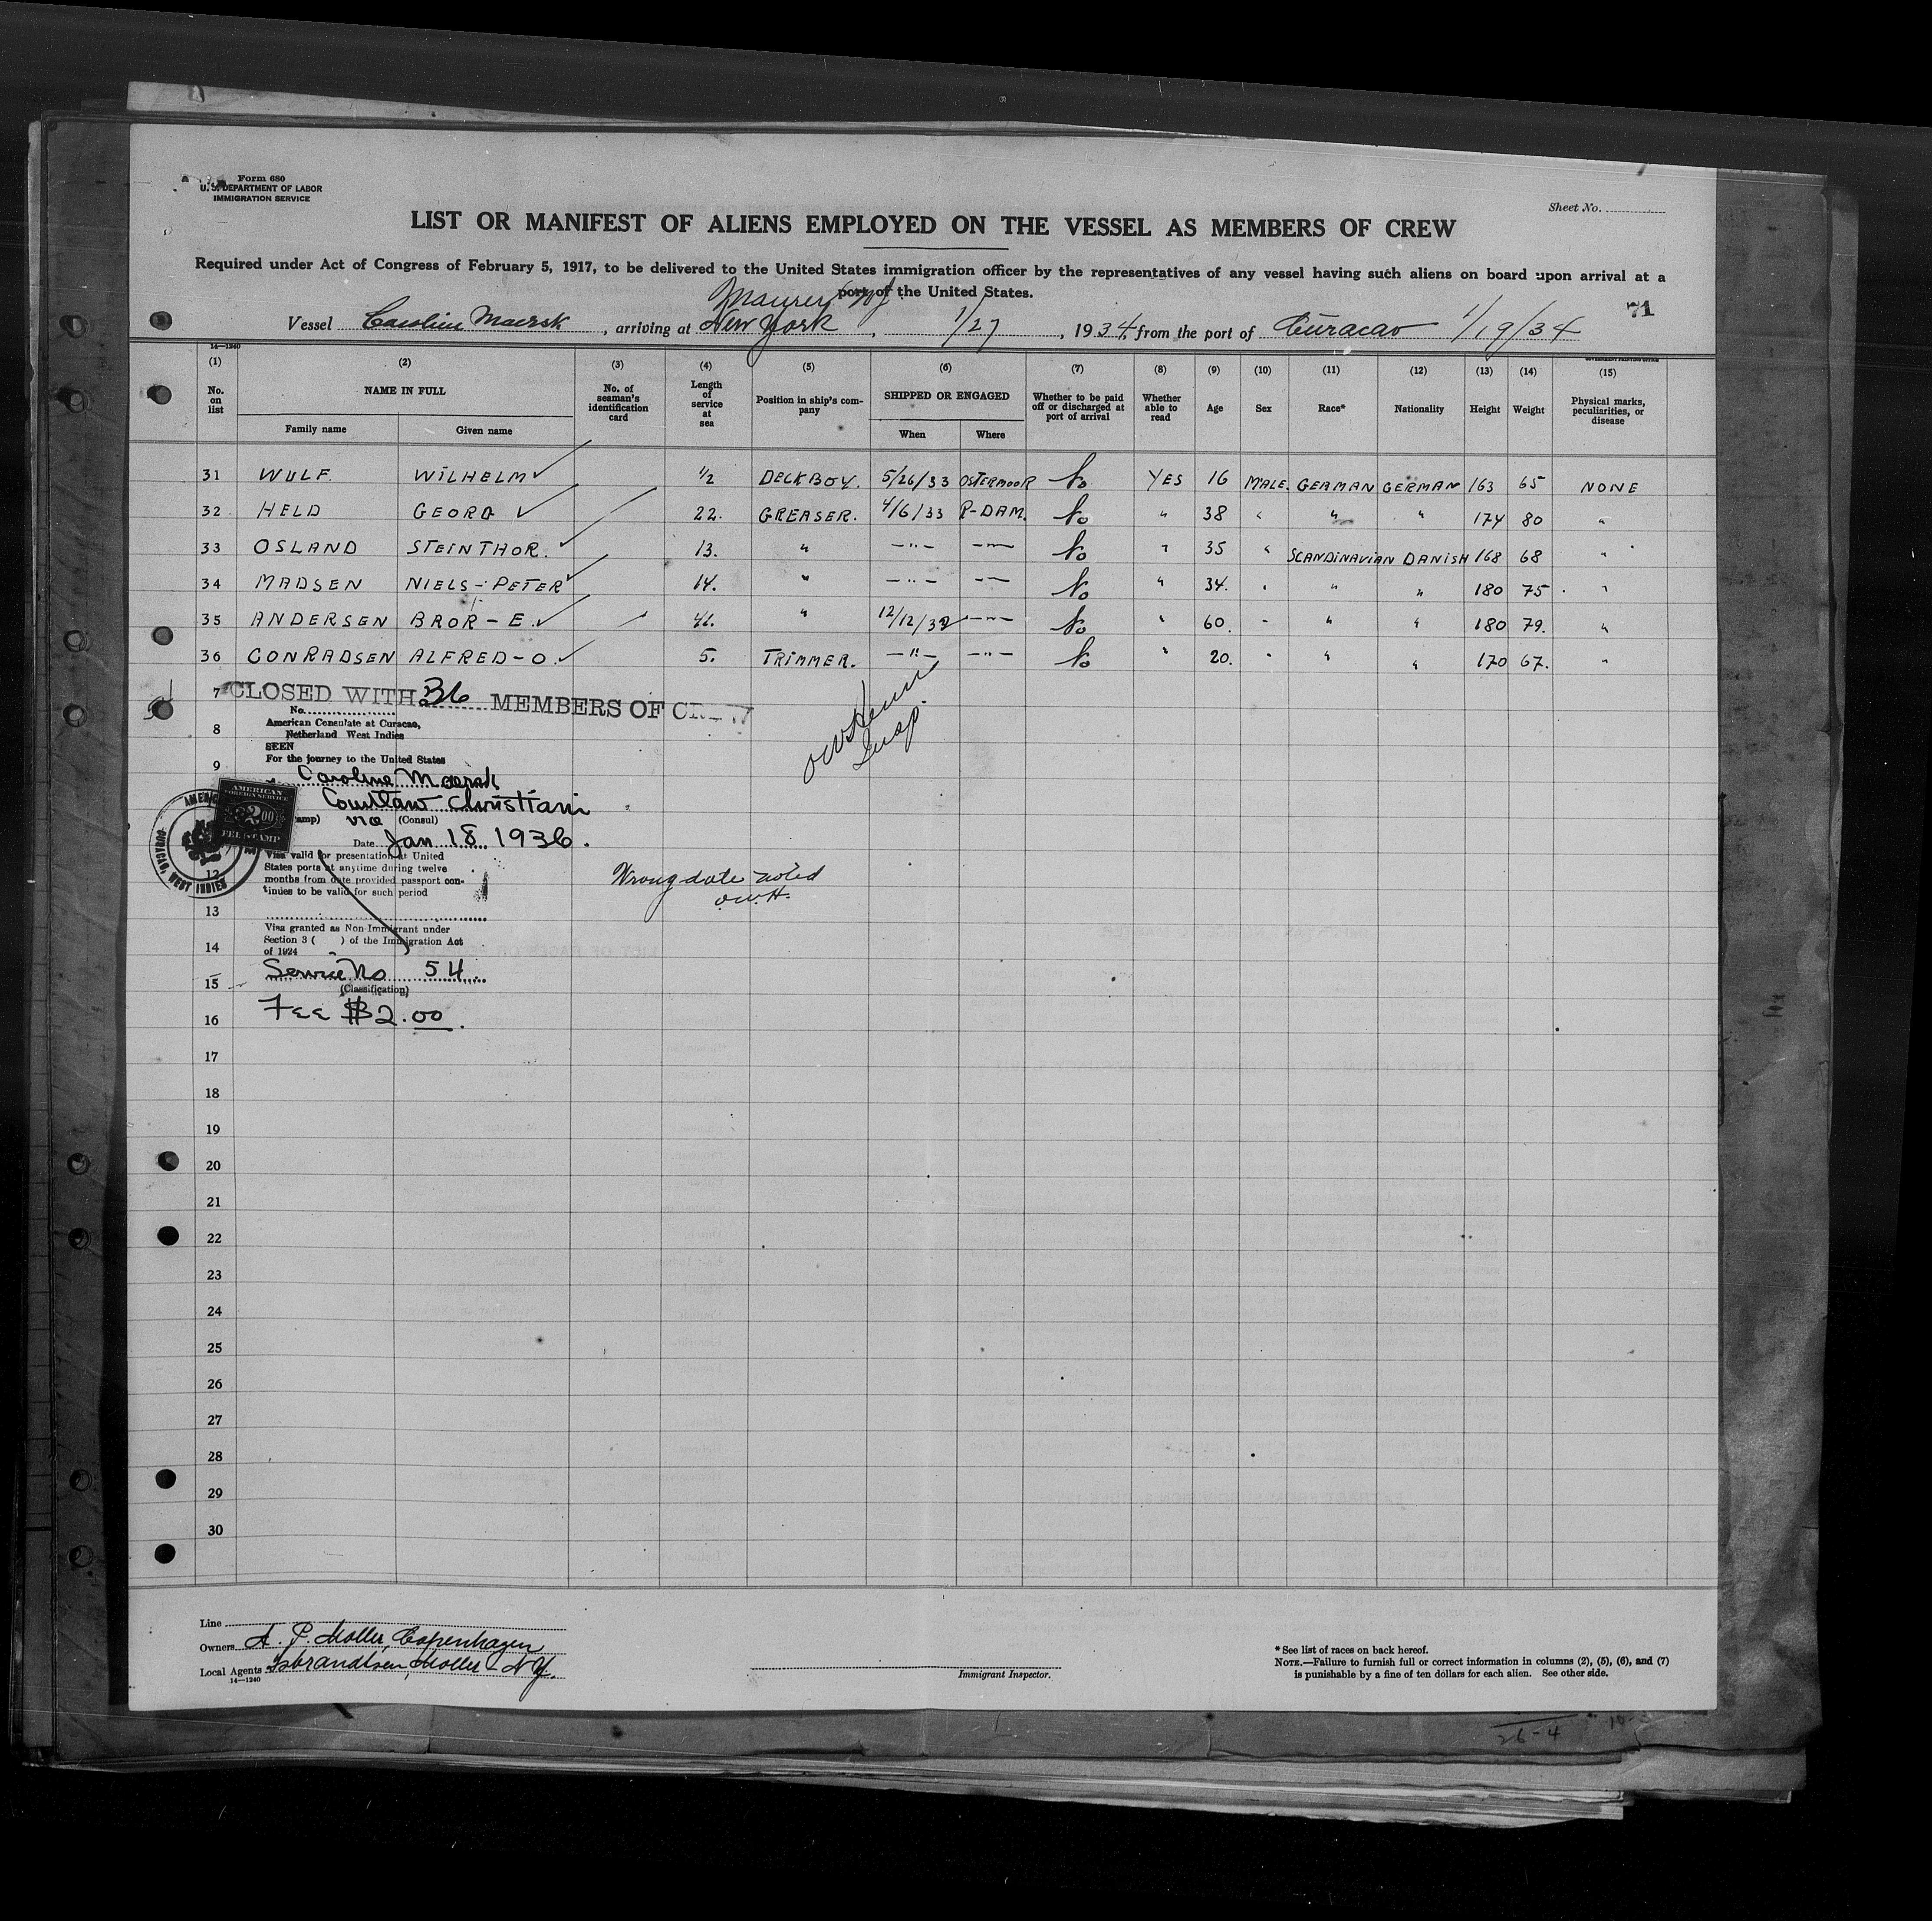 Form 680
U. S. DEPARTMENT OF LABOR
IMMIGRATION SERVICE
Sheet No.
LIST OR MANIFEST OF ALIENS EMPLOYED ON THE VESSEL AS MEMBERS OF CREW
Required under Act of Congress of February 5, 1917, to be delivered to the United States immigration officer by the representatives of any vessel having such aliens on board upon arrival at a
port of the United States.
Maurer NJ
71
Vessel Caroline Maersk, arriving at New York, 1/27, 1934, from the port of Curacao 1/19/34
14—1240
GOVERNMENT PRINTING OFFICE
(1) (2) (3) (4) (5) (6) (7) (8) (9) (10) (11) (12) (13) (14) (15)
No. on list
NAME IN FULL
Family name
Given name
No. of seaman's identification card
Length of service at sea
Position in ship's company
SHIPPED OR ENGAGED
When
Where
Whether to be paid off or discharged at port of arrival
Whether able to read
Age
Sex
Race*
Nationality
Height
Weight
Physical marks, peculiarities, or disease
31 WULF. WILHELM ✓ 1/2 DECKBOY. 5/26/33 OSTERMOOR No YES 16 MALE. GERMAN GERMAN 163 65 NONE
32 HELD GEORG ✓ 22. GREASER. 4/6/33 R-DAM. No " 38 " " " 174 80 "
33 OSLAND STEINTHOR. ✓ 13. " —"— —"— No " 35 " SCANDINAVIAN DANISH 168 68 "
34 MADSEN NIELS-PETER ✓ 14. " —"— —"— No " 34. " " " 180 75 "
35 ANDERSEN BROR-E. ✓ 41. " 12/12/32 —"— No " 60. " " " 180 79. "
36 CONRADSEN ALFRED-O. ✓ 5. TRIMMER. —"— —"— No " 20. " " " 170 67. "
7 CLOSED WITH 36 MEMBERS OF CREW
No.
American Consulate at Curacao,
8 Netherland West Indies
SEEN
For the journey to the United States
9
Caroline Maersk
Christiani
AMERICAN
FOREIGN SERVICE
$2.00
FEE STAMP
vice (Consul)
Date Jan 18 1936.
CURAÇAO, WEST INDIES
Visa valid for presentation at United
States ports at anytime during twelve
12
months from date provided passport con-
tinues to be valid for such period
Wrong date noted
O.W.H.
13
Visa granted as Non-Immigrant under
Section 3 ( ) of the Immigration Act
14 of 1924
Service No 54.
15 (Classification)
16 Fee $2.00.
Insp.
17
18
19
20
21
22
23
24
25
26
27
28
29
30
Line
Owners A. P. Moller, Copenhagen
Local Agents Isbrandtsen, Moller - N Y.
14—1240
Immigrant Inspector.
* See list of races on back hereof.
NOTE.—Failure to furnish full or correct information in columns (2), (5), (6), and (7)
is punishable by a fine of ten dollars for each alien. See other side.
26-4